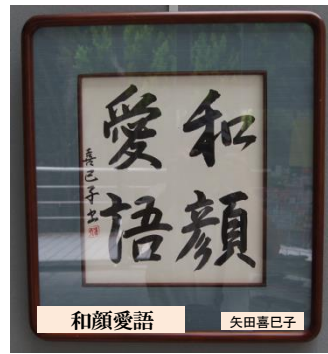 和顔
愛語
喜巳子書
和顔愛語
矢田喜巳子